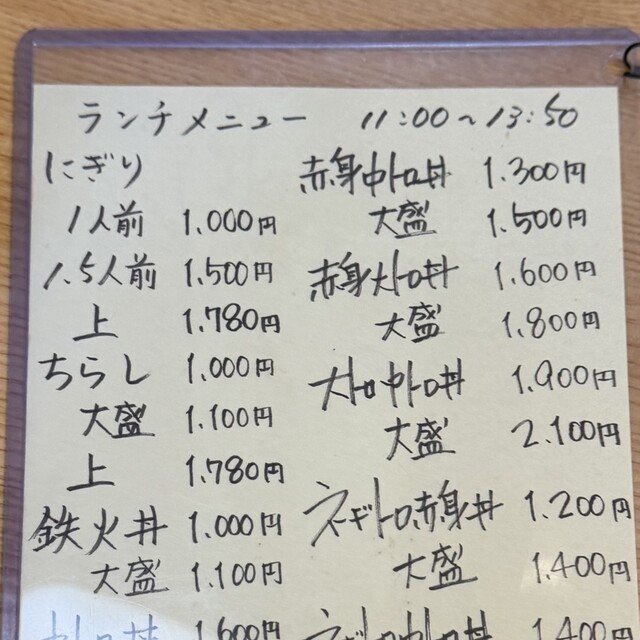 ランチメニュー 11:00~13:50
にぎり
1人前 1.000円
1.5人前 1.500円
上 1.780円
ちらし 1.000円
大盛 1.100円
上 1.780円
鉄火丼 1.000円
大盛 1.100円
中トロ丼 1.600円
赤身中トロ丼 1.300円
大盛 1.500円
赤身大トロ丼 1.600円
大盛 1.800円
大トロ中トロ丼 1.900円
大盛 2.100円
ネギトロ赤身丼 1.200円
大盛 1.400円
ネギトロ中トロ丼 1.400円